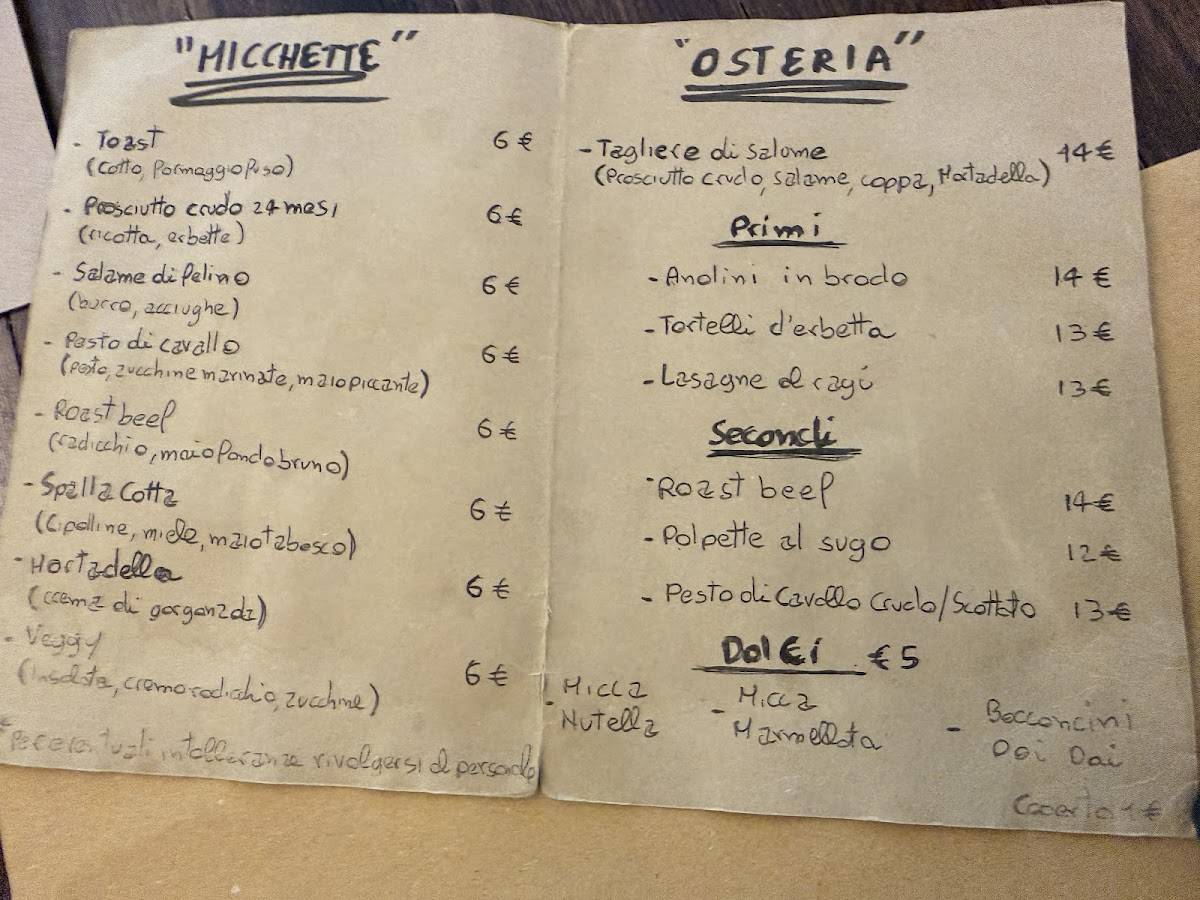 "MICCHETTE"
- Toast 6 €
(Cotto, Formaggio Fuso)
- Prosciutto crudo 24 mesi 6 €
(ricotta, erbette)
- Salame di Felino 6 €
(burro, acciughe)
- Pesto di cavallo 6 €
(pesto, zucchine marinate, maio piccante)
- Roast beef 6 €
(radicchio, maio fondo bruno)
- Spalla Cotta 6 €
(Cipolline, miele, maio tabasco)
- Mortadella 6 €
(crema di gorgonzola)
- Veggy 6 €
(insalata, crema radicchio, zucchine)
* Per eventuali intolleranze rivolgersi al personale
"OSTERIA"
- Tagliere di salume 14 €
(Prosciutto crudo, salame, coppa, Mortadella)
Primi
- Anolini in brodo 14 €
- Tortelli d'erbetta 13 €
- Lasagne al ragù 13 €
Secondi
- Roast beef 14 €
- Polpette al sugo 12 €
- Pesto di Cavallo Crudo/Scottato 13 €
Dolci € 5
- Micca
Nutella
- Micca
Marmellata
- Bocconcini
Dai
Coperto 1 €